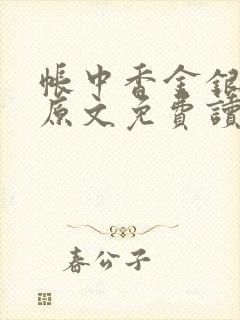 帳中香金銀
原文免費讀
春公子